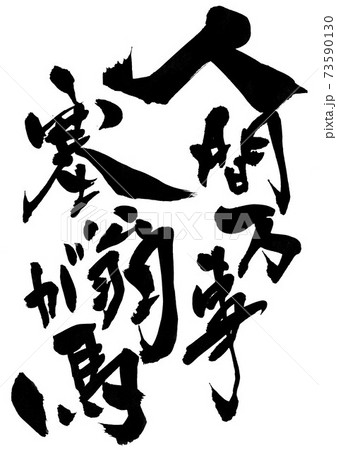 人間万事
塞翁が馬
pixta.jp - 73590130